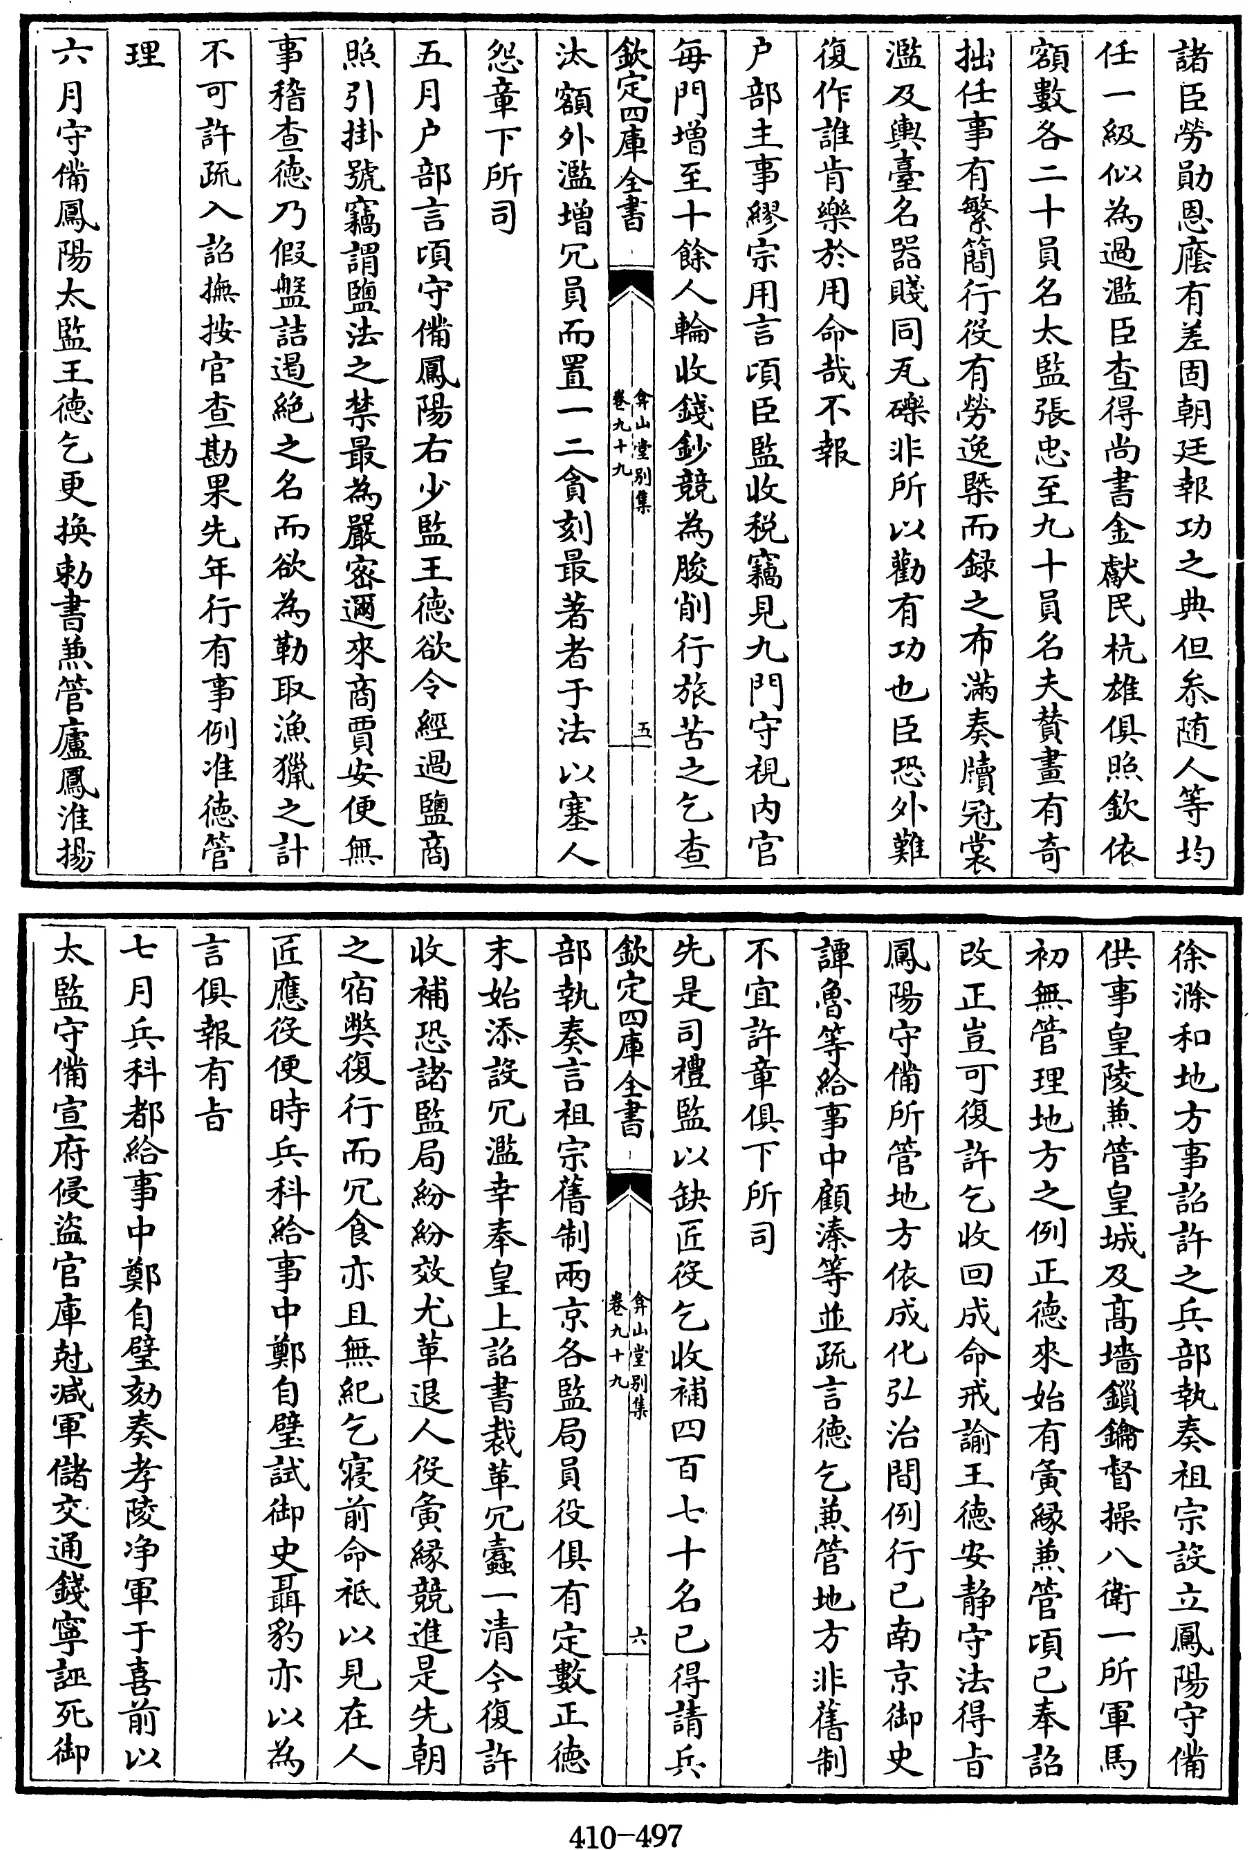 諸臣勞勛恩廕有差固朝廷報功之典但叅随人等均
任一級似為過濫臣查得尚書金獻民杭雄俱照欽依
額數各二十員名太監張忠至九十員名夫賛畫有奇
拙任事有繁簡行役有勞逸槩而録之布滿奏牘冠裳
濫及輿臺名器賤同瓦礫非所以勸有功也臣恐外難
復作誰肯樂於用命哉不報
户部主事繆宗用言頃臣監收税竊見九門守視内官
每門增至十餘人輪收錢鈔競為朘削行旅苦之乞查
欽定四庫全書
弇山堂别集
卷九十九
五
汰額外濫増冗員而置一二貪刻最著者于法以塞人
怨章下所司
五月户部言頃守備鳳陽右少監王德欲令經過鹽商
照引掛號竊謂鹽法之禁最為嚴密邇來商賈安便無
事稽查德乃假盤詰遏絶之名而欲為勒取漁獵之計
不可許疏入詔撫按官查勘果先年行有事例准德管
理
六月守備鳳陽太監王德乞更換勅書兼管廬鳳淮揚
徐滁和地方事詔許之兵部執奏祖宗設立鳳陽守備
供事皇陵兼管皇城及髙墻鎻鑰督操八衛一所軍馬
初無管理地方之例正德來始有夤縁兼管頃已奉詔
改正豈可復許乞收回成命戒諭王德安静守法得㫖
鳳陽守備所管地方依成化弘治間例行已南京御史
譚魯等給事中顧溱等並疏言德乞兼管地方非舊制
不宜許章俱下所司
先是司禮監以缺匠役乞收補四百七十名已得請兵
欽定四庫全書
弇山堂别集
卷九十九
六
部執奏言祖宗舊制兩京各監局員役俱有定數正德
末始添設冗濫幸奉皇上詔書裁革冗蠧一清今復許
收補恐諸監局紛紛效尤革退人役夤縁競進是先朝
之宿獘復行而冗食亦且無紀乞寢前命袛以見在人
匠應役便時兵科給事中鄭自璧試御史聶豹亦以為
言俱報有㫖
七月兵科都給事中鄭自璧劾奏孝陵净軍于喜前以
太監守備宣府侵盜官庫尅减軍儲交通錢寧誣死御
410-497